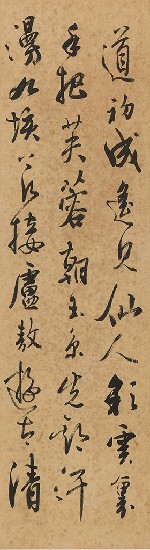 道初成遙見仙人彩雲裏
手把芙蓉朝玉京先期汗
漫九垓上願接盧敖遊太清